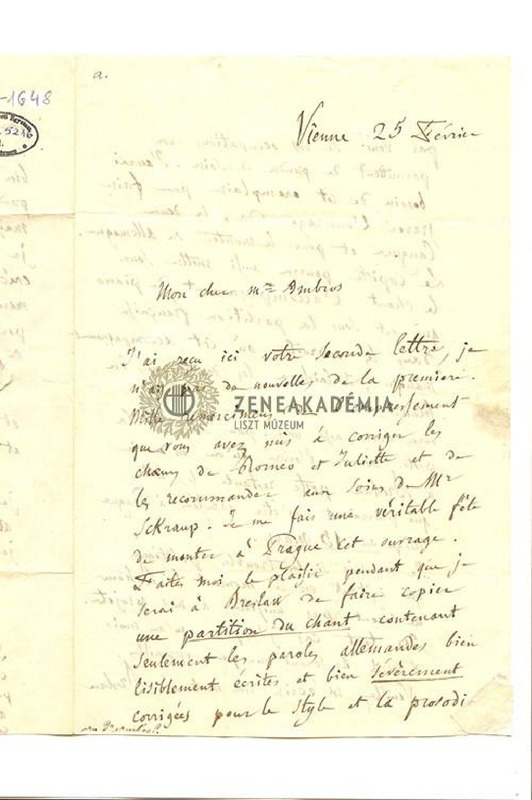 -1648
5216
a.
Vienne 25 Février
Mon cher mr Ambros
J'ai reçu ici votre seconde lettre, je
n'ai pas de nouvelles de la premiere.
Mille remercimens de l'empressement
que vous avez mis à corriger les
chœurs de Romeo et Juliette et de
les recommander aux soins de Mr
Sckraup. Je me fais une veritable fête
de monter à Prague cet ouvrage.
Faites moi le plaisir pendant que je
serai à Breslau de faire copier
une partition du chant contenant
seulement les paroles allemandes bien
lisiblement écrites et bien sévèrement
corrigées pour le style et la prosodi
ZENEAKADÉMIA
LISZT MÚZEUM